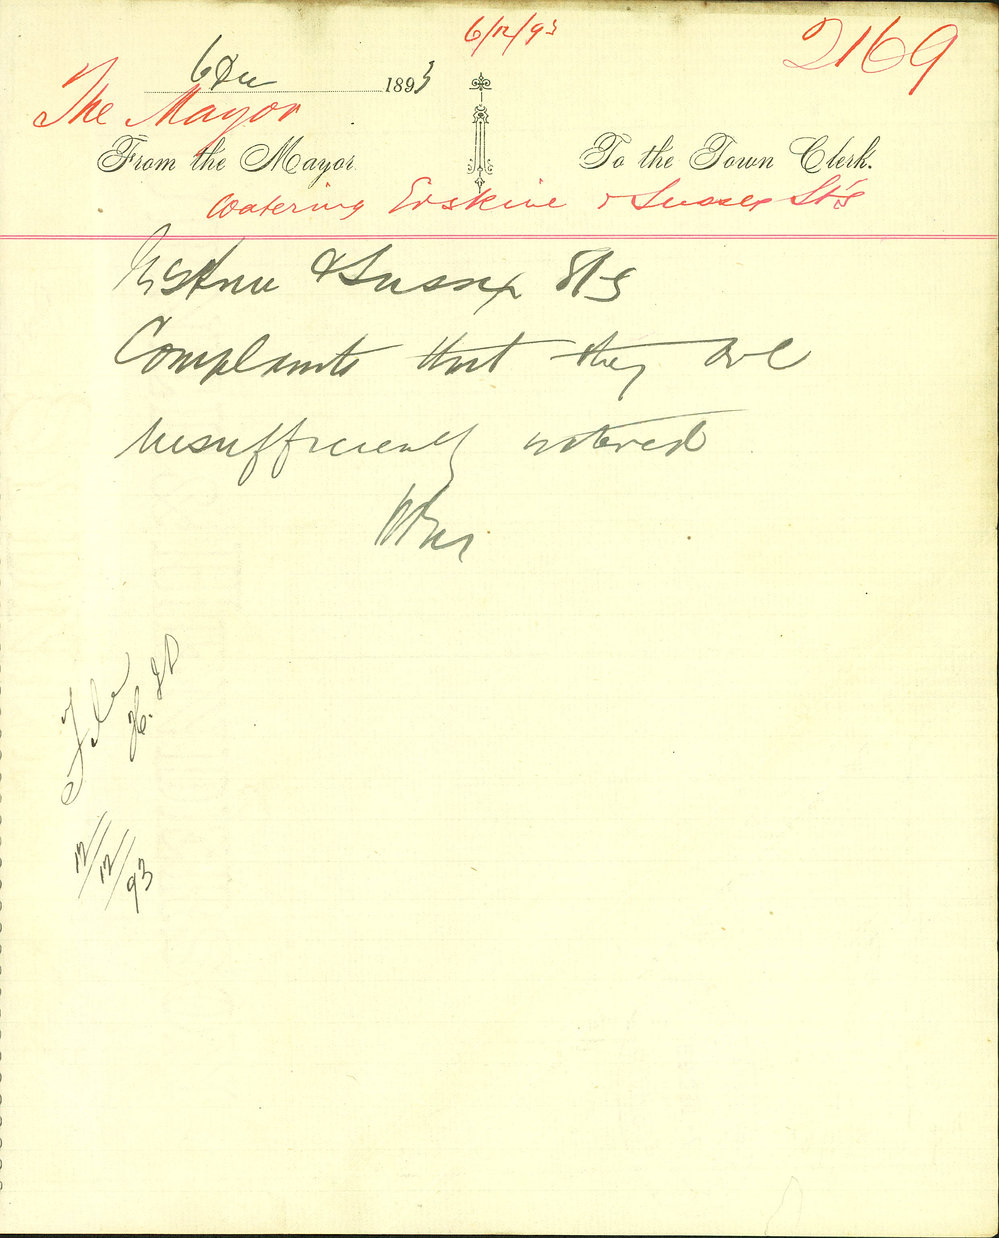 6/12/93
2169
6 Dec 1893
The Mayor
From the Mayor.
To the Town Clerk.
Watering Erskine & Sussex St's
Erskine & Sussex Sts
Complaints that they are
insufficiently watered
File
12/12/93